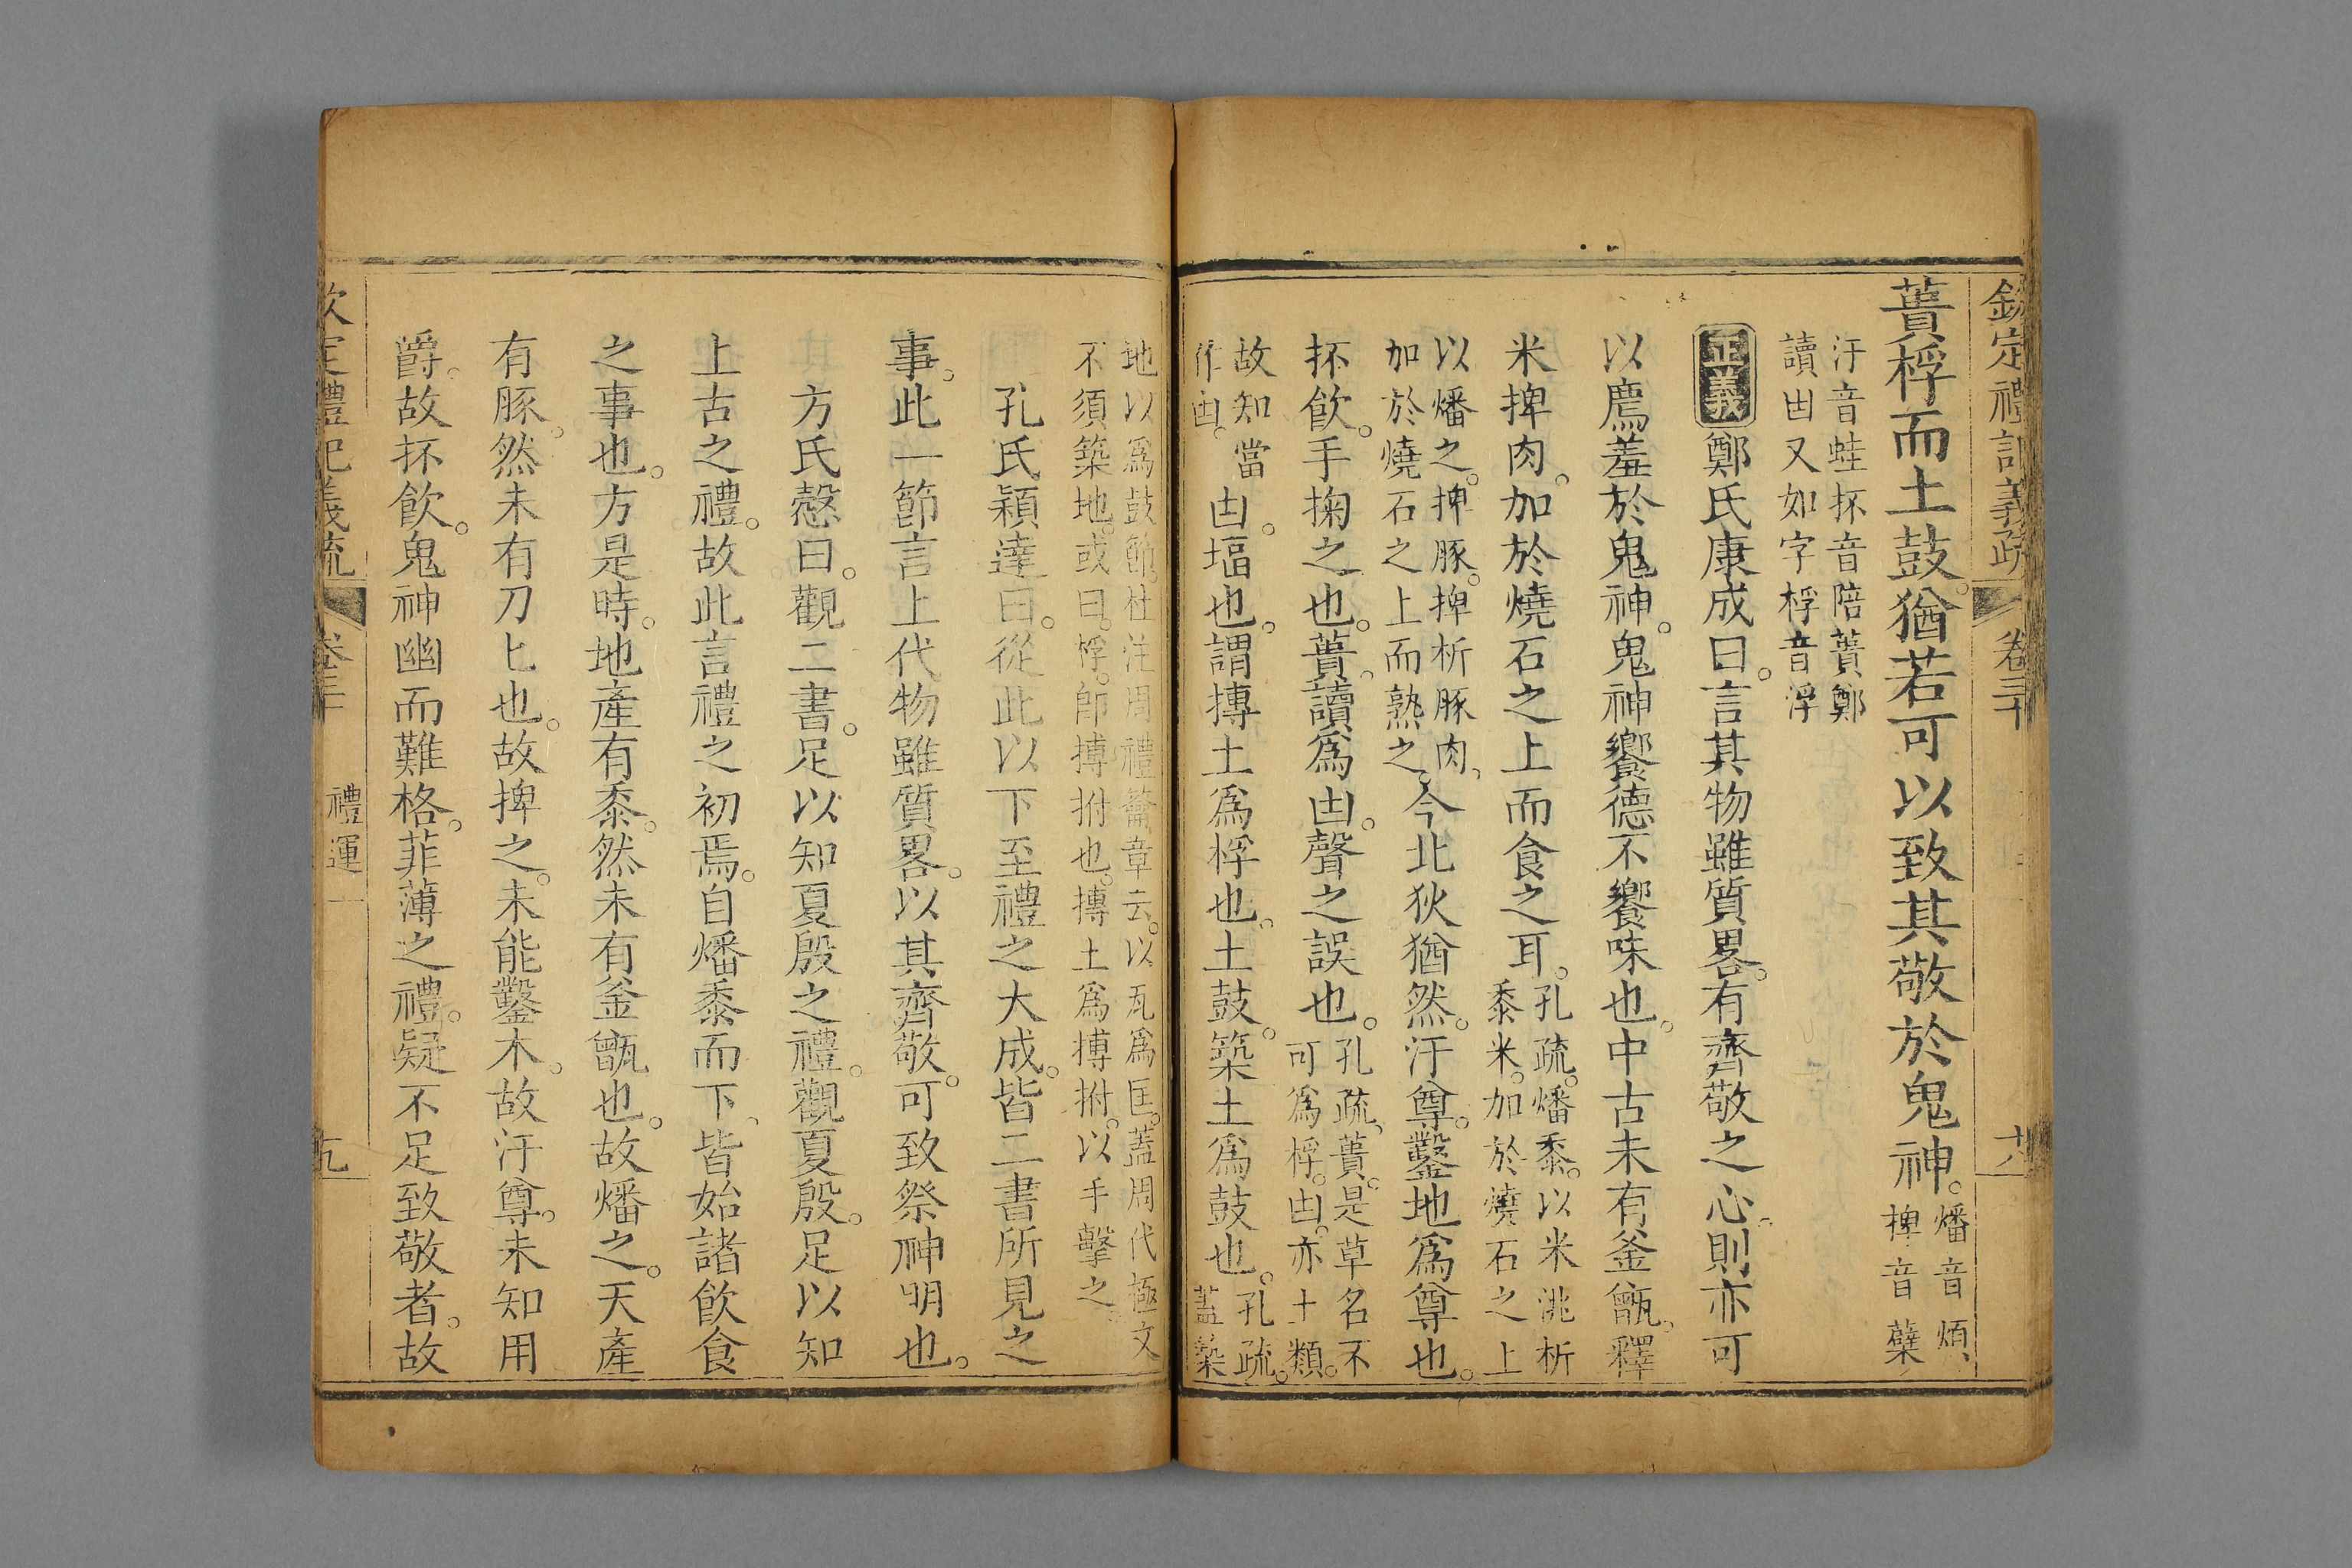 欽定禮記義疏 卷三十 十八
蕢桴而土鼓。猶若可以致其敬於鬼神。燔音煩、捭音孽
汙音蛙抔音陪蕢鄭讀凷又如字桴音浮
正義 鄭氏康成曰。言其物雖質畧。有齊敬之心。則亦可
以薦羞於鬼神。鬼神饗德不饗味也。中古未有釜甑。釋
米捭肉。加於燒石之上而食之耳。孔疏。燔黍。以米洮析黍米。加於燒石之上
以燔之。捭豚。捭析豚肉、加於燒石之上而熟之。今北狄猶然。汙尊。鑿地爲尊也。
抔飲。手掬之也。蕢。讀爲凷。聲之誤也。孔疏、蕢。是草名不可爲桴。凷。亦土類。
故知當作凷。凷。堛也。謂摶土爲桴也。土鼓。築土爲鼓也。孔疏。蓋築
地以爲鼓節。杜注周禮籥章云。以瓦爲匡。蓋周代極文不須築地。或曰。桴。卽摶拊也。摶土爲摶拊。以手擊之。
孔氏穎達曰。從此以下至禮之大成。皆二書所見之
事。此一節言上代物雖質畧。以其齊敬。可致祭神明也。
方氏慤曰。觀二書。足以知夏殷之禮。觀夏殷。足以知
上古之禮。故此言禮之初焉。自燔黍而下、皆始諸飲食
之事也。方是時。地產有黍。然未有釜甑也。故燔之。天產
有豚。然未有刀匕也。故捭之。未能鑿木。故汙尊。未知用
爵。故抔飲。鬼神幽而難格。菲薄之禮。疑不足致敬者。故
欽定禮記義疏 卷三十 禮運一 九